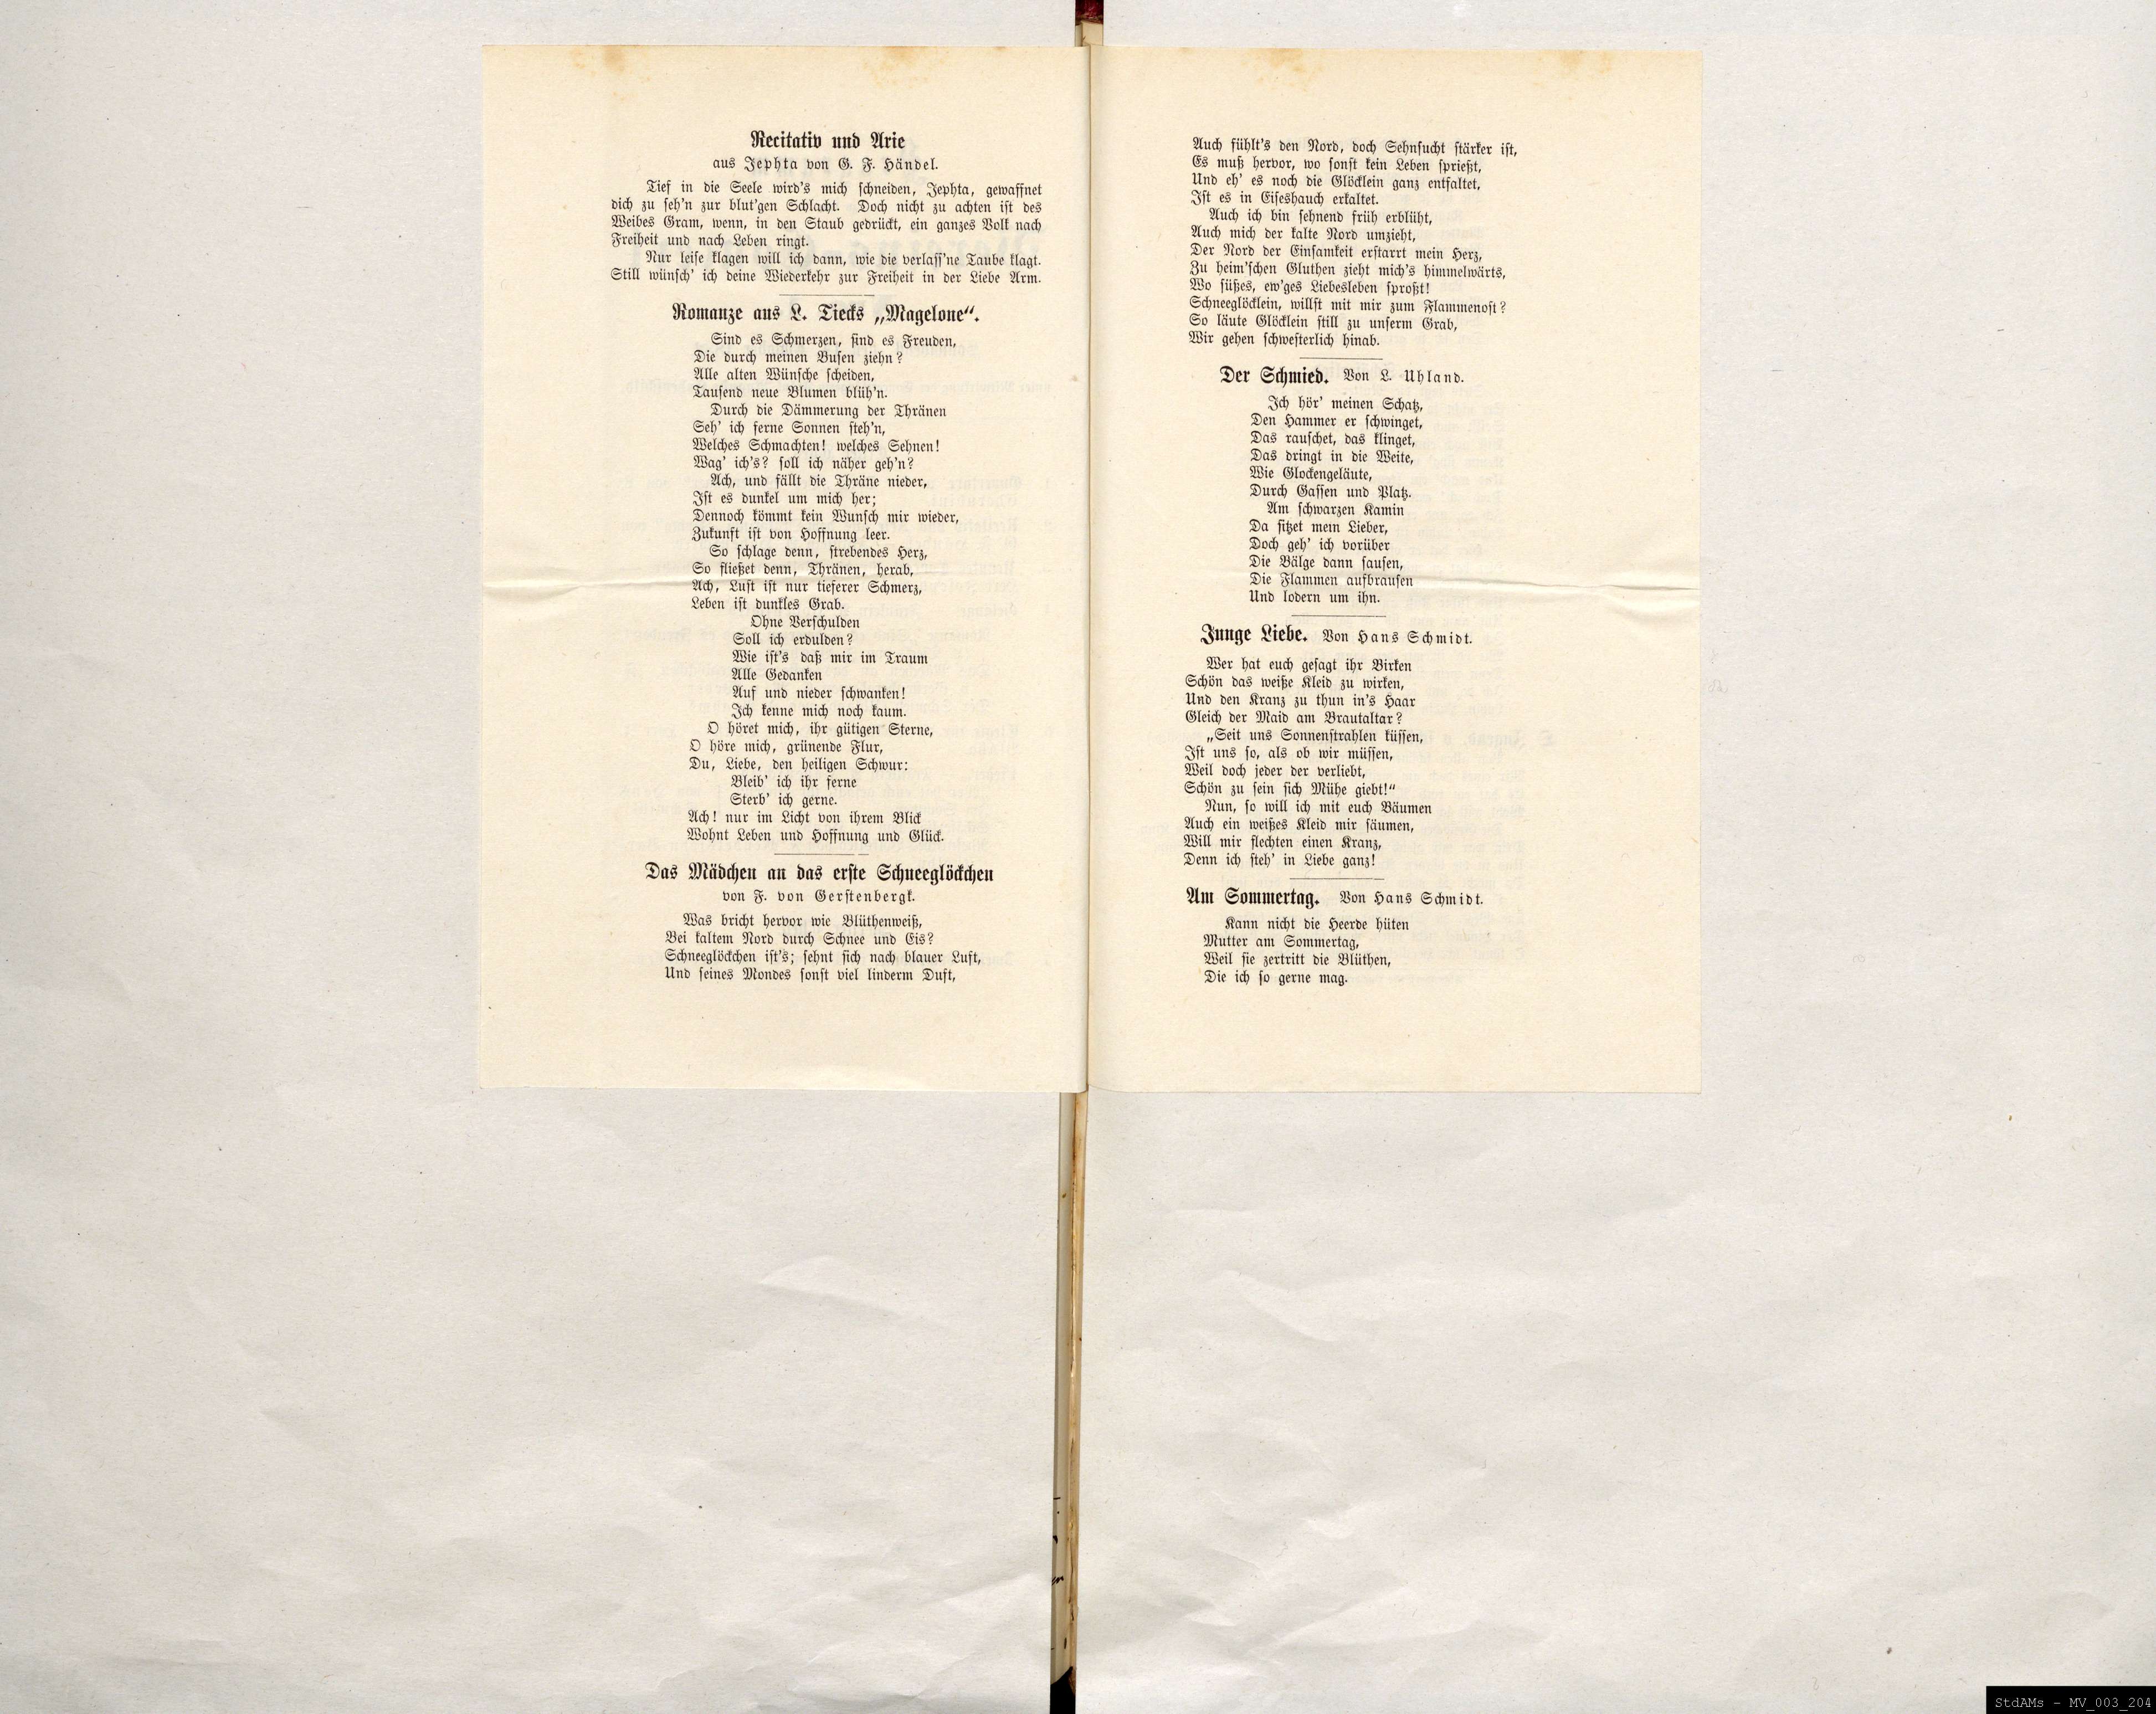 Recitativ und Arie
aus Jephta von G. F. Händel.
Tief in die Seele wird's mich schneiden, Jephta, gewaffnet
dich zu seh'n zur blut'gen Schlacht. Doch nicht zu achten ist des
Weibes Gram, wenn, in den Staub gedrückt, ein ganzes Volk nach
Freiheit und nach Leben ringt.
Nur leise klagen will ich dann, wie die verlass'ne Taube klagt.
Still wünsch' ich deine Wiederkehr zur Freiheit in der Liebe Arm.
Romanze aus L. Tiecks „Magelone“.
Sind es Schmerzen, sind es Freuden,
Die durch meinen Busen ziehn?
Alle alten Wünsche scheiden,
Tausend neue Blumen blüh'n.
Durch die Dämmerung der Thränen
Seh' ich ferne Sonnen steh'n,
Welches Schmachten! welches Sehnen!
Wag' ich's? soll ich näher geh'n?
Ach, und fällt die Thräne nieder,
Ist es dunkel um mich her;
Dennoch kömmt kein Wunsch mir wieder,
Zukunft ist von Hoffnung leer.
So schlage denn, strebendes Herz,
So fließet denn, Thränen, herab,
Ach, Lust ist nur tieferer Schmerz,
Leben ist dunkles Grab.
Ohne Verschulden
Soll ich erdulden?
Wie ist's daß mir im Traum
Alle Gedanken
Auf und nieder schwanken!
Ich kenne mich noch kaum.
O höret mich, ihr gütigen Sterne,
O höre mich, grünende Flur,
Du, Liebe, den heiligen Schwur:
Bleib' ich ihr ferne
Sterb' ich gerne.
Ach! nur im Licht von ihrem Blick
Wohnt Leben und Hoffnung und Glück.
Das Mädchen an das erste Schneeglöckchen
von F. von Gerstenbergk.
Was bricht hervor wie Blüthenweiß,
Bei kaltem Nord durch Schnee und Eis?
Schneeglöckchen ist's; sehnt sich nach blauer Luft,
Und seines Mondes sonst viel linderm Duft,
Auch fühlt's den Nord, doch Sehnsucht stärker ist,
Es muß hervor, wo sonst kein Leben sprießt,
Und eh' es noch die Glöcklein ganz entfaltet,
Ist es in Eiseshauch erkaltet.
Auch ich bin sehnend früh erblüht,
Auch mich der kalte Nord umzieht,
Der Nord der Einsamkeit erstarrt mein Herz,
Zu heim'schen Gluthen zieht mich's himmelwärts,
Wo süßes, ew'ges Liebesleben sproßt!
Schneeglöcklein, willst mit mir zum Flammenost?
So läute Glöcklein still zu unserm Grab,
Wir gehen schwesterlich hinab.
Der Schmied. Von L. Uhland.
Ich hör' meinen Schatz,
Den Hammer er schwinget,
Das rauschet, das klinget,
Das dringt in die Weite,
Wie Glockengeläute,
Durch Gassen und Platz.
Am schwarzen Kamin
Da sitzet mein Lieber,
Doch geh' ich vorüber
Die Bälge dann sausen,
Die Flammen aufbrausen
Und lodern um ihn.
Junge Liebe. Von Hans Schmidt.
Wer hat euch gesagt ihr Birken
Schön das weiße Kleid zu wirken,
Und den Kranz zu thun in's Haar
Gleich der Maid am Brautaltar?
„Seit uns Sonnenstrahlen küssen,
Ist uns so, als ob wir müssen,
Weil doch jeder der verliebt,
Schön zu sein sich Mühe giebt!“
Nun, so will ich mit euch Bäumen
Auch ein weißes Kleid mir säumen,
Will mir flechten einen Kranz,
Denn ich steh' in Liebe ganz!
Am Sommertag. Von Hans Schmidt.
Kann nicht die Heerde hüten
Mutter am Sommertag,
Weil sie zertritt die Blüthen,
Die ich so gerne mag.
StdAMs - MV_003_204